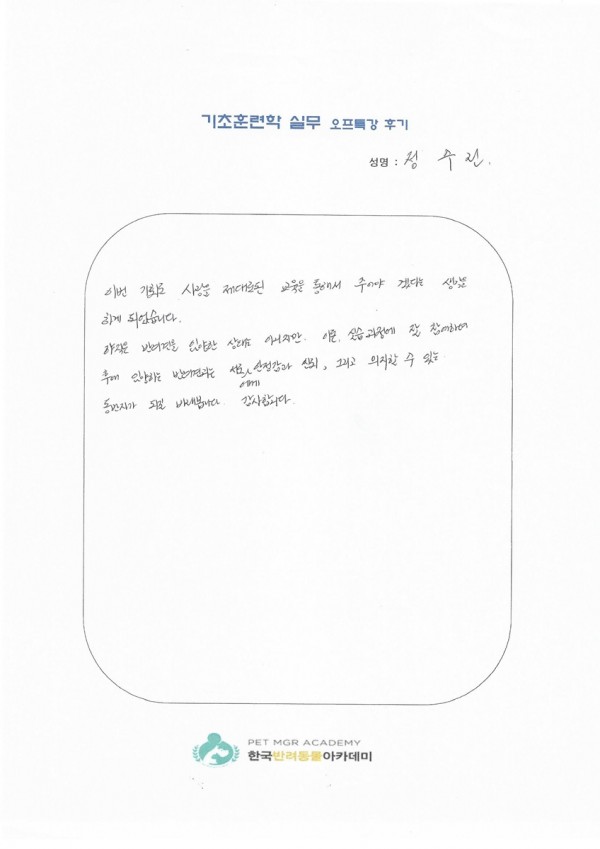 기초훈련학 실무 오프특강 후기
성명 : 정 수 진.
이번 기회로 사랑을 제대로된 교육을 통해서 주어야 겠다는 생각을
하게 되었습니다.
아직은 반려견을 입양한 상태는 아니지만. 이론, 실습과정에 잘 참여하여
후에 입양하는 반려견과는 서로 안정감과 신뢰, 그리고 의지할 수 있는
에게
동반자가 되길 바래봅니다. 감사합니다.
PET MGR ACADEMY
한국반려동물아카데미